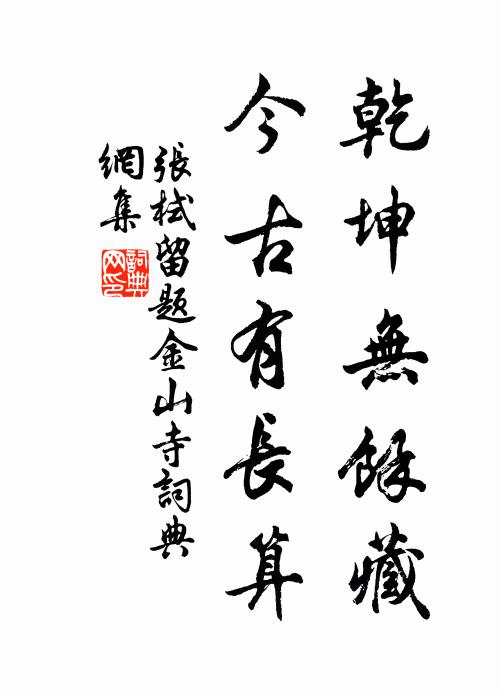 乾坤無餘藏
今古有長算
張栻留題金山寺詞典
網集
詞典
网印